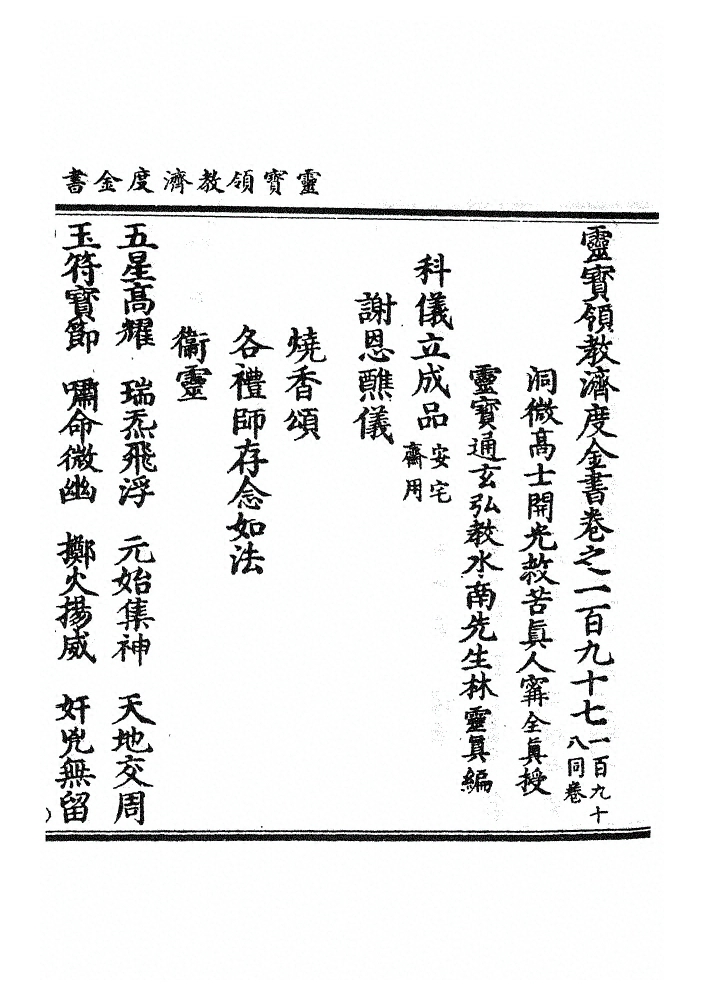 靈寶領教濟度金書
靈寶領教濟度金書卷之一百九十七一百九十八同卷
洞微高士開光救苦眞人甯全眞授
靈寶通玄弘教水南先生林靈眞編
科儀立成品安宅齋用
謝恩醮儀
燒香頌
各禮師存念如法
衞靈
五星高耀　瑞炁飛浮　元始集神　天地交周
玉符寶節　嘯命微幽　擲火揚威　奸兇無留